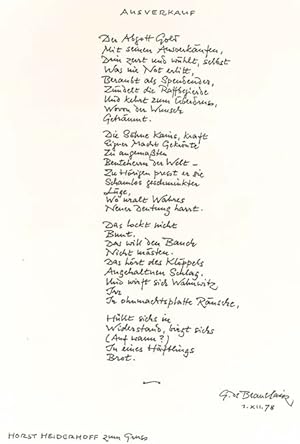 AUSVERKAUF
Der Abgott Gold
Mit seinen Ausverkäufen,
Drin zerrt und wühlt, selbst
Was nie Not erlitt,
Beraubt als Spendender,
Zündelt die Raffbegierde
Und kehrt zum Überdruss,
Wovon der Wunsch
Geträumt.
Die Söhne Kains, kraft
Eigner Macht Gekrönte
Zu angemaßten
Beuteherrn der Welt –
Zu Hörigen presst er sie
Schamlos geschminkter
Lüge,
Wo uralt Wahres
Neuer Deutung harrt.
Das lockt nicht
Bunt.
Das will den Bauch
Nicht mästen.
Das hört des Klöppels
Angehaltnen Schlag,
Und wirft sich Wahnwitz
In ohnmachtsplatte Räusche,
Hüllt sichs in
Widerstand, birgt sichs
(Auf wann?)
In eines Häftlings
Brot.
G. de Beauclair
1.XII.78
HORST HEIDERHOFF zum Gruss